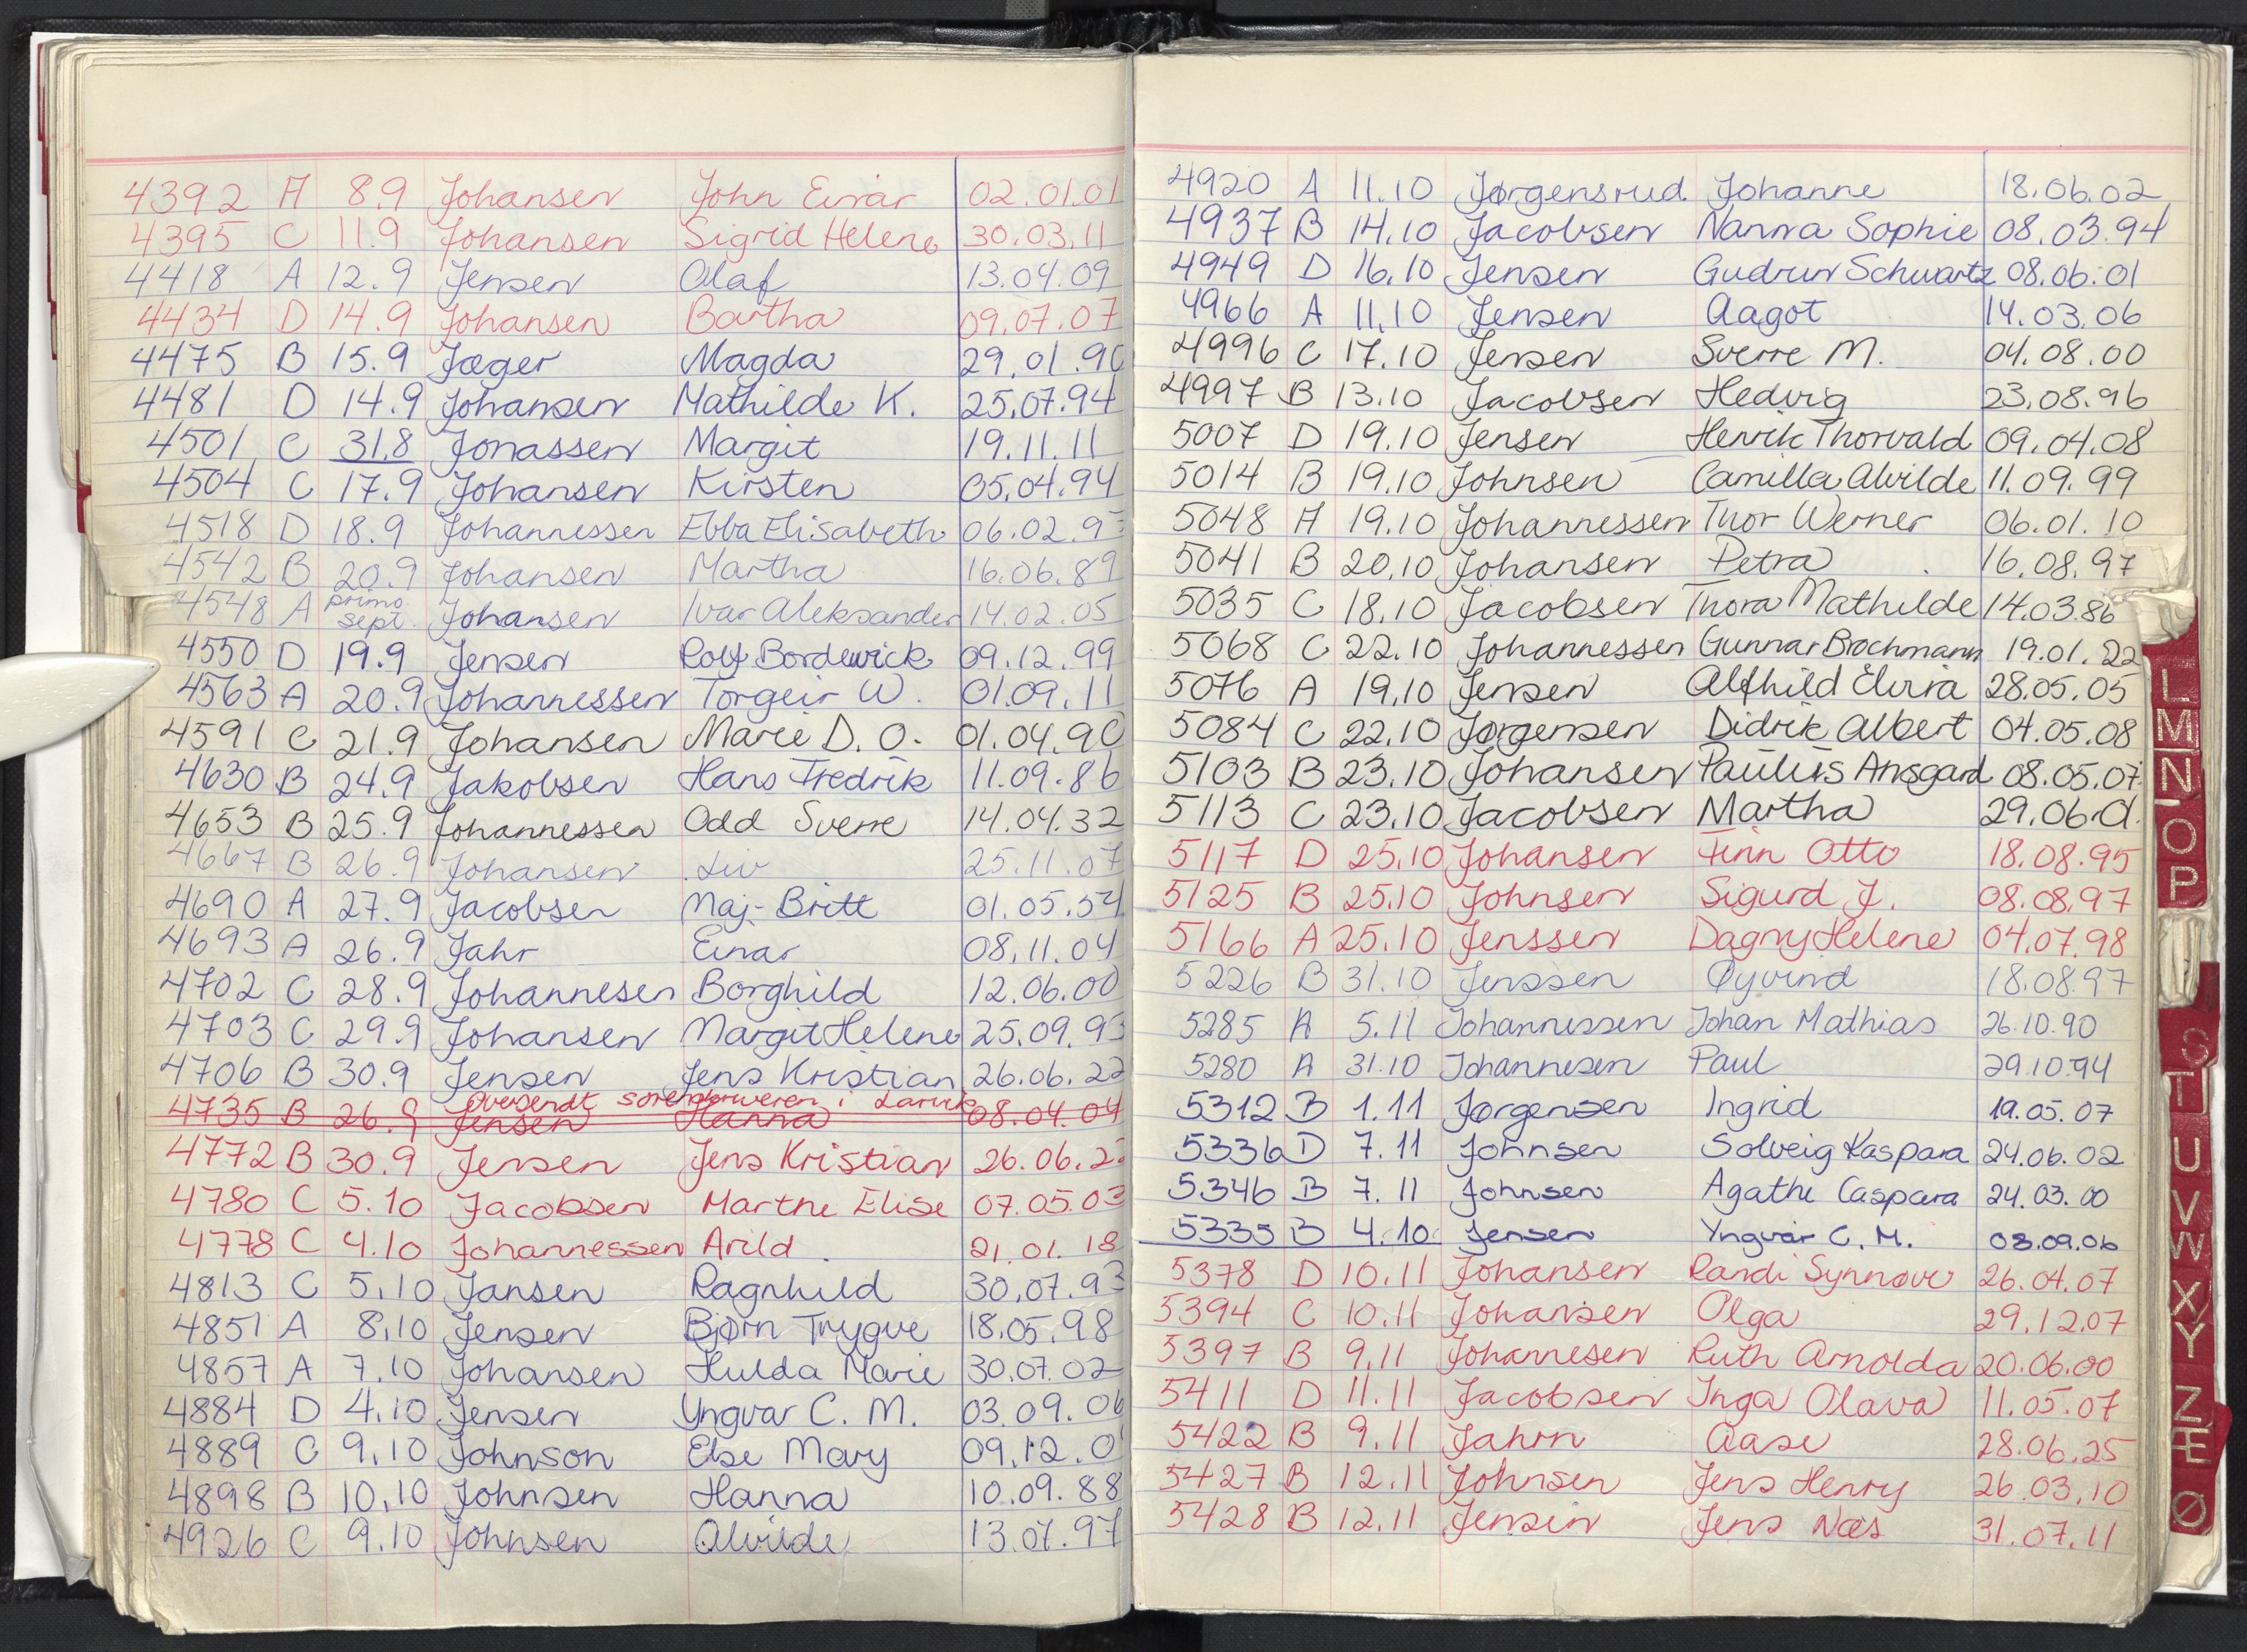 4392 A 8.9 Johansen John Einar 02.01.01
4395 C 11.9 Johansen Sigrid Helene 30.03.11
4418 A 12.9 Jensen Olaf 13.04.09
4434 D 14.9 Johansen Bartha 09.07.07
4475 B 15.9 Jæger Magda
4481 D 14.9 Johansen Mathilde K. 25.07.94
4501 C 31.8 Jonassen Margit 19.11.11
4504 C 17.9 Johansen Kirsten 05.04.94
4518 D 18.9 Johannessen Ebba Elisabeth
4542 B 20.9 Johansen Martha 16.06.89
4548 A primo sept. Johansen Ivar Aleksander 14.02.05
4550 D 19.9 Jensen Rolf Bordewick 09.12.99
4563 A 20.9 Johannessen Torgeir W. 01.09.11
4591 C 21.9 Johansen Marie D. O. 01.04.90
4630 B 24.9 Jakobsen Hans Fredrik 11.09.86
4653 B 25.9 Johannessen Odd Sverre 14.04.32
4667 B 26.9 Johansen Liv 25.11.07
4690 A 27.9 Jacobsen Maj-Britt 01.05.54
4693 A 26.9 Jahr Einar 08.11.04
4702 C 28.9 Johannesen Borghild 12.06.00
4703 C 29.9 Johansen Margit Helene 25.09.93
4706 B 30.9 Jensen Jens Kristian 26.06.22
Oversendt sorenskriveren i Larvik
4735 B 26.9 Jensen Hanna 08.04.04
4772 B 30.9 Jensen Jens Kristian
4780 C 5.10 Jacobsen Marthe Elise 07.05.03
4778 C 4.10 Johannessen Arild 21.01.18
4813 C 5.10 Jansen Ragnhild 30.07.93
4851 A 8.10 Jensen Bjørn Trygve 18.05.98
4857 A 7.10 Johansen Hulda Marie 30.07.02
4884 D 4.10 Jensen Yngvar C. M. 03.09.06
4889 C 9.10 Johnson Else Mary
4898 B 10.10 Johnsen Hanna 10.09.88
4926 C 9.10 Johnsen Alvilde 13.07.97
4920 A 11.10 Jørgensrud Johanne 18.06.02
4937 B 14.10 Jacobsen Nanna Sophie 08.03.94
4949 D 16.10 Jensen Gudrun Schwartz 08.06.01
4966 A 11.10 Jensen Aagot 14.03.06
4996 C 17.10 Jensen Sverre M. 04.08.00
4997 B 13.10 Jacobsen Hedvig 23.08.96
5007 D 19.10 Jensen Henrik Thorvald 09.04.08
5014 B 19.10 Johnsen Camilla Alvilde 11.09.99
5048 A 19.10 Johannessen Thor Werner 06.01.10
5041 B 20.10 Johansen Petra 16.08.97
5035 C 18.10 Jacobsen Thora Mathilde 14.03.86
5068 C 22.10 Johannessen Gunnar Brochmann 19.01.22
5076 A 19.10 Jensen Alfhild Elvira 28.05.05
5084 C 22.10 Jørgensen Didrik Albert 04.05.08
5103 B 23.10 Johansen Paulus Ansgard 08.05.07
5113 C 23.10 Jacobsen Martha
5117 D 25.10 Johansen Finn Otto 18.08.95
5125 B 25.10 Johnsen Sigurd J. 08.08.97
5166 A 25.10 Jenssen Dagny Helene 04.07.98
5226 B 31.10 Jenssen Øyvind 18.08.97
5285 A 5.11 Johannessen Johan Mathias 26.10.90
5280 A 31.10 Johannesen Paul 29.10.94
5312 B 1.11 Jørgensen Ingrid 19.05.07
5336 D 7.11 Johnsen Solveig Kaspara 24.06.02
5346 B 7.11 Johnsen Agathe Caspara 24.03.00
5335 B 4.10 Jensen Yngvar C. M. 03.09.06
5378 D 10.11 Johansen Randi Synnøve 26.04.07
5394 C 10.11 Johansen Olga 29.12.07
5397 B 9.11 Johannesen Ruth Arnolda 20.06.00
5411 D 11.11 Jacobsen Inga Olava 11.05.07
5422 B 9.11 Jahrn Aase 28.06.25
5427 B 12.11 Johnsen Jens Henry 26.03.10
5428 B 12.11 Jensen Jens Næs 31.07.11
L
M
N
O
P
S
T
U
V
W
X
Y
Z
Æ
Ø